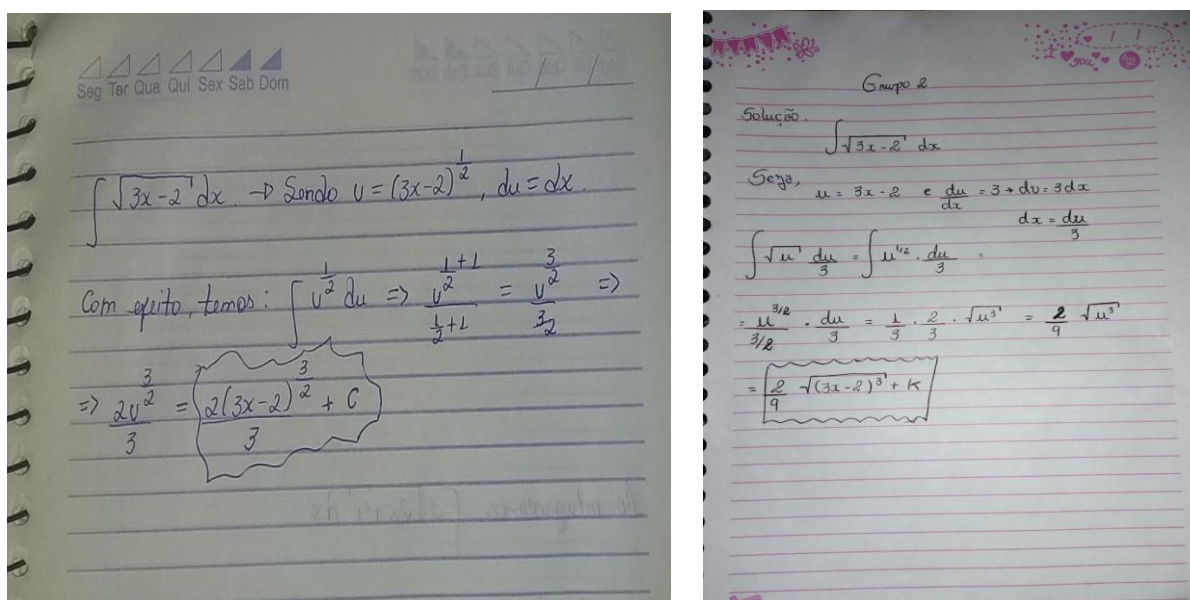 Seg Ter Qua Qui Sex Sab Dom
/ /
∫ √(3x-2) dx → Sendo v = (3x-2)^(1/2), du = dx.
Com efeito, temos: ∫ v^(1/2) du => v^(1/2+1) / (1/2+1) = v^(3/2) / (3/2) =>
=> 2v^(3/2) / 3 = 2(3x-2)^(3/2) / 3 + C
I ♥ you ♥
/ /
Grupo 2
Solução.
∫ √(3x-2) dx
Seja,
u = 3x-2 e du/dx = 3 → du = 3dx
dx = du/3
∫ √u du/3 = ∫ u^(1/2) . du/3 =
= u^(3/2) / (3/2) . du/3 = 1/3 . 2/3 . √u³ = 2/9 √u³
= 2/9 √(3x-2)³ + K